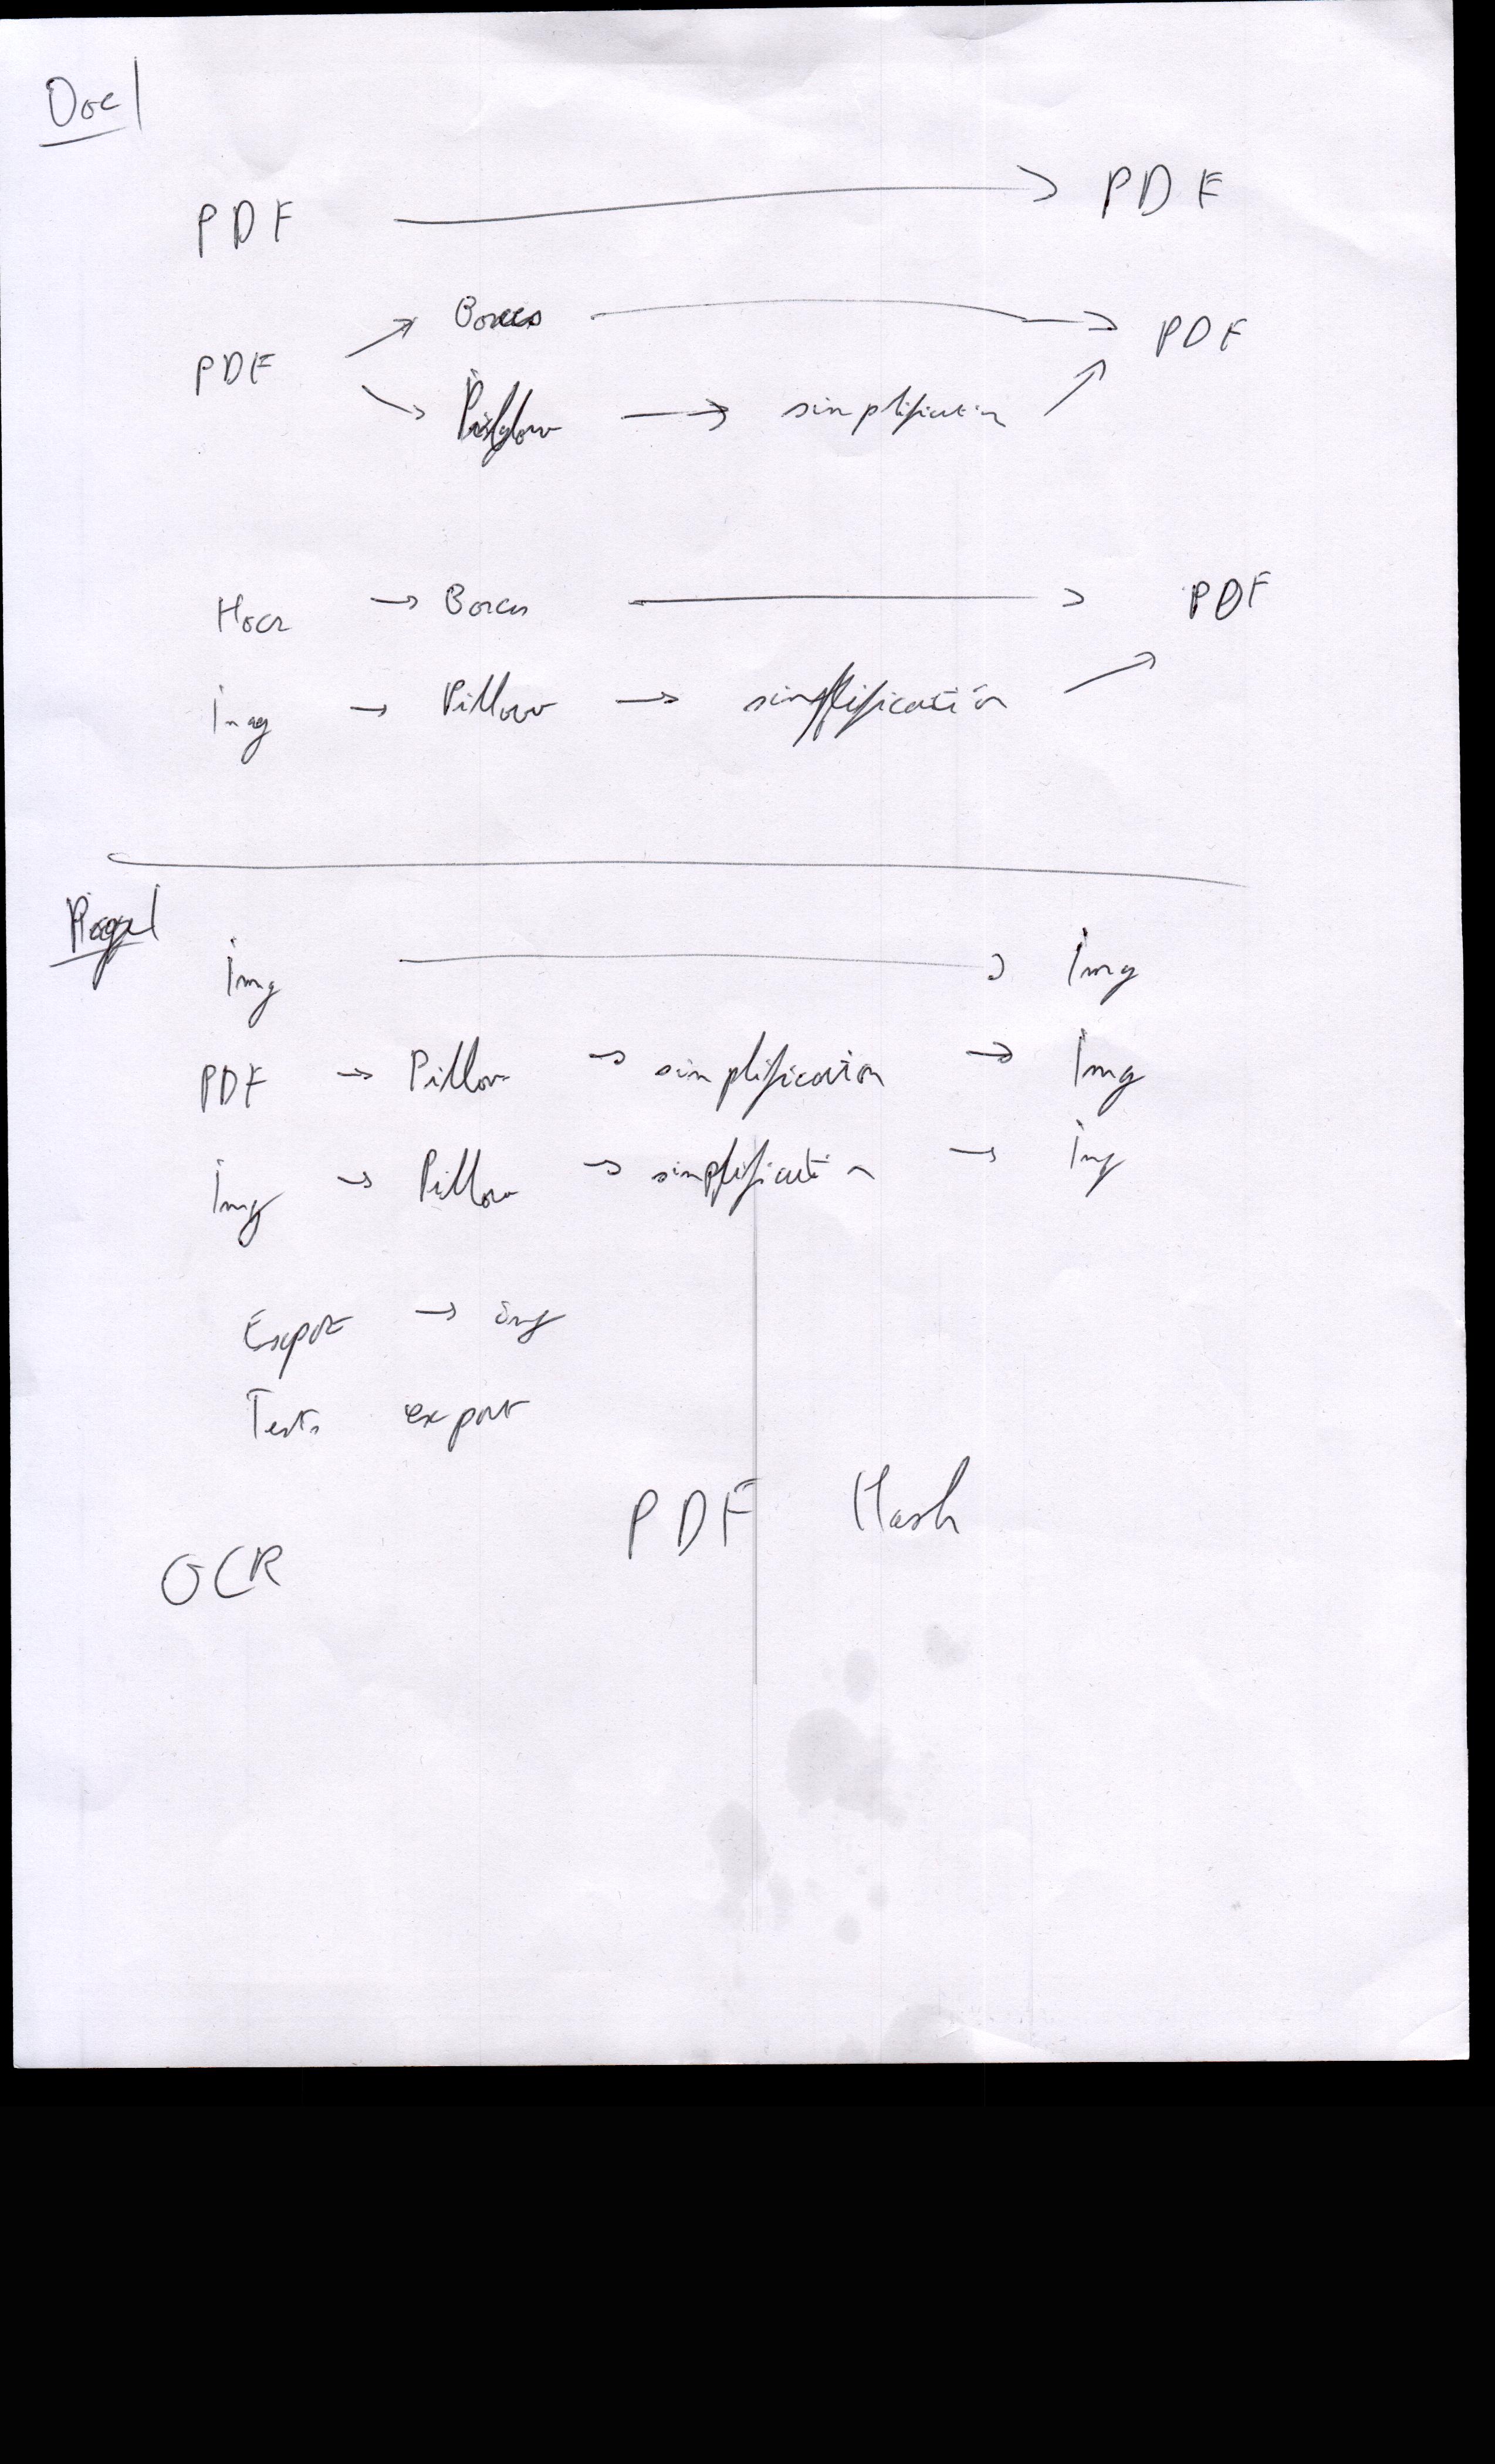 Doc
PDF → PDF
PDF ↗ Boxes → PDF
↘ Pillow → simplification ↗
Hocr → Boxes → PDF
Img → Pillow → simplification ↗
Page
Img → Img
PDF → Pillow → simplification → Img
Img → Pillow → simplification → Img
Export → img
Tests export
PDF Hash
OCR